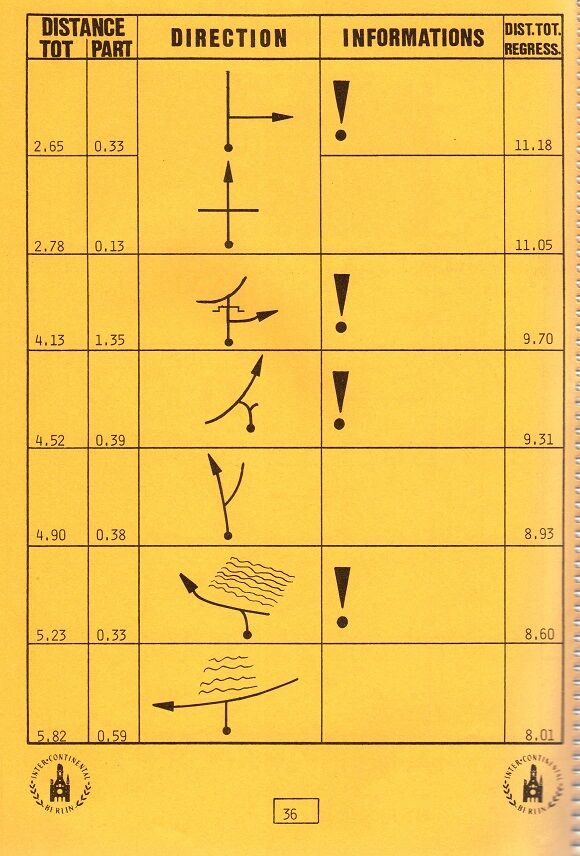 DISTANCE
TOT PART
DIRECTION
INFORMATIONS
DIST.TOT.
REGRESS.
2.65 0.33 ! 11.18
2.78 0.13 11.05
4.13 1.35 ! 9.70
4.52 0.39 ! 9.31
4.90 0.38 8.93
5.23 0.33 ! 8.60
5.82 0.59 8.01
INTER·CONTINENTAL
BERLIN
36
INTER·CONTINENTAL
BERLIN